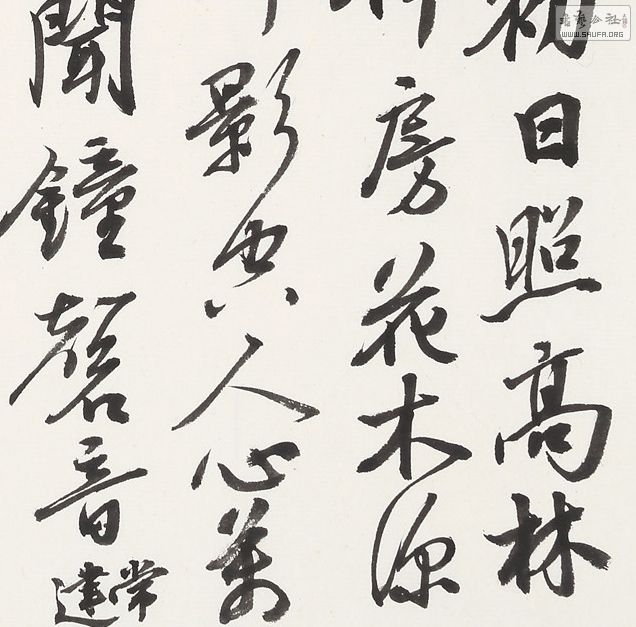 初日照高林
房花木深
影空人心萬
聞鐘磬音
常建
書藝公社
WWW.SHUFA.ORG